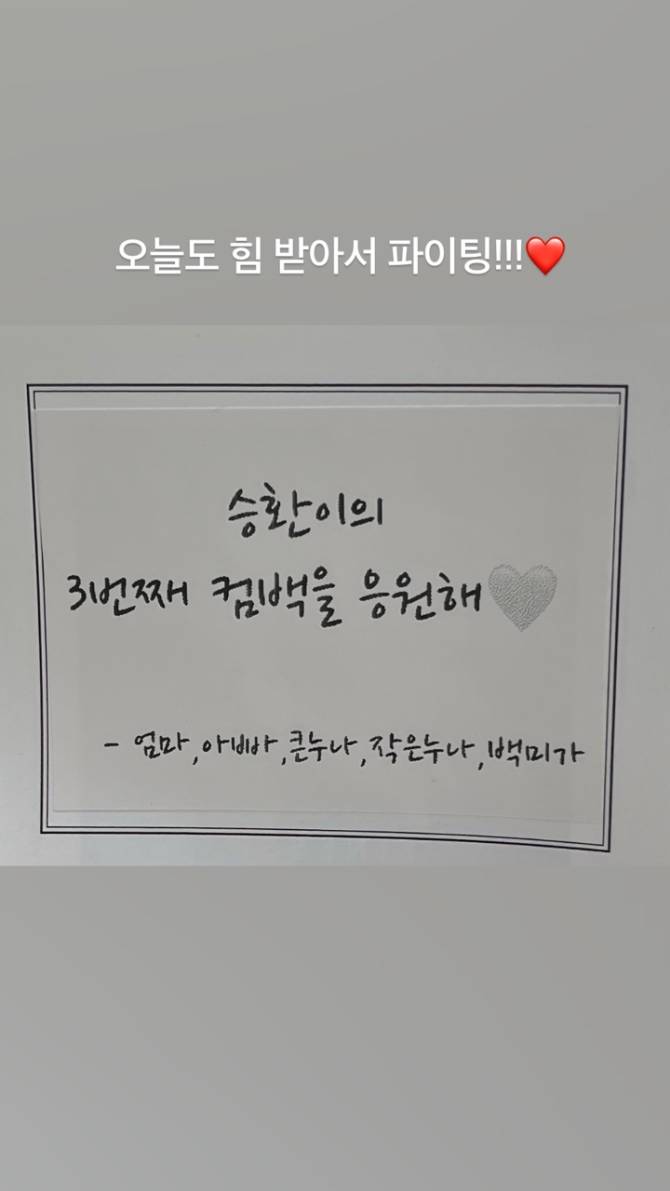 오늘도 힘 받아서 파이팅!!!❤️
승환이의
3번째 컴백을 응원해🤍
- 엄마,아빠,큰누나,작은누나,백미가